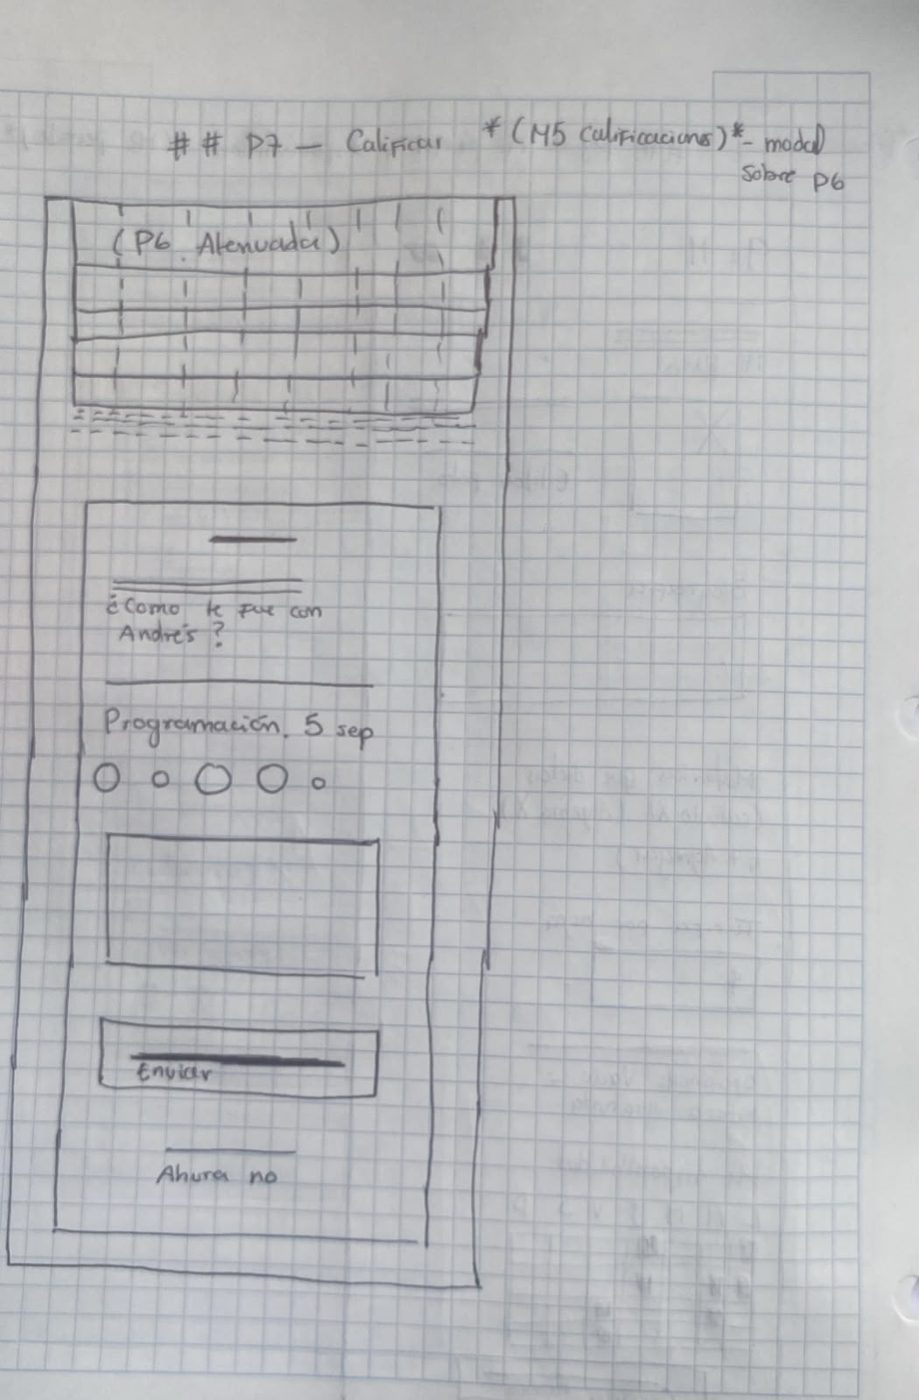 ## P7 — Calificar *(M5 Calificaciones)*- modal
sobre P6
(P6 Atenuada)
¿Como te fue con
Andrés?
Programación, 5 sep
Enviar
Ahora no